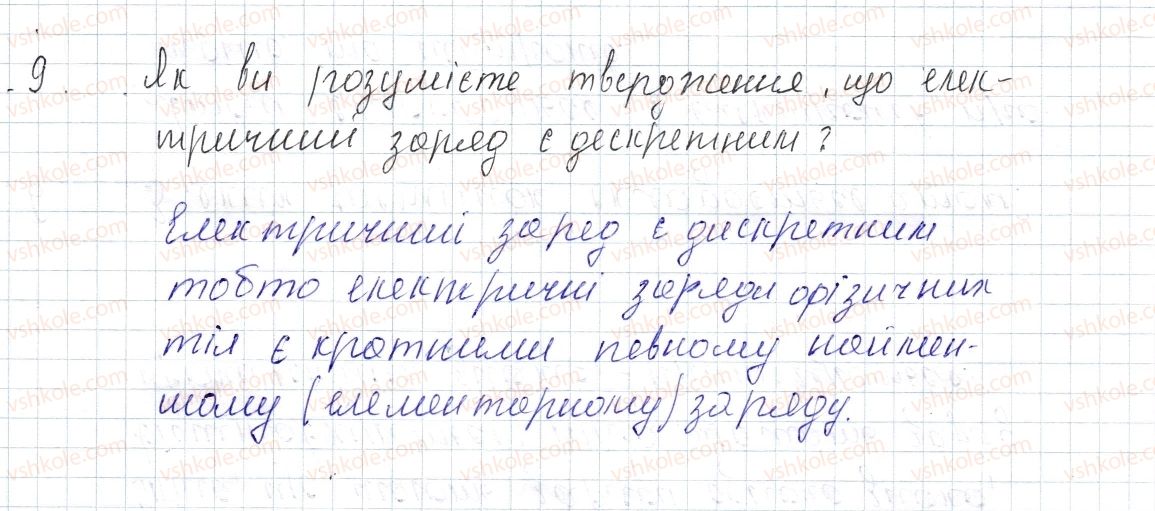 9. Як ви розумієте твердження, що елек-
тричний заряд є дескретним?
Електричний заряд є дискретним
тобто електричні заряди фізичних
тіл є кратними певному наймен-
шому (елементарному) заряду.